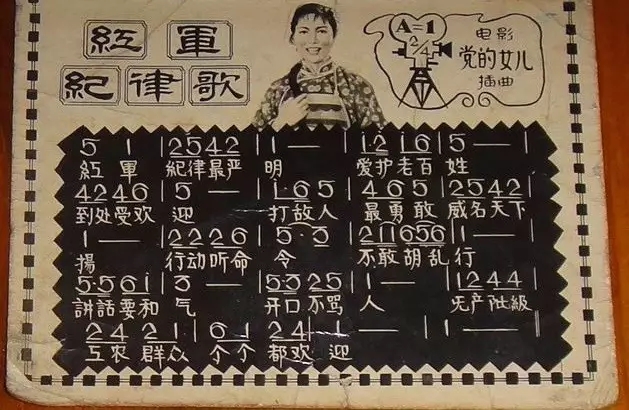 紅軍
紀律歌
A=1
2/4
电影
党的女儿
插曲
5 1 | 2542 | 1 — | 12 16 | 5 — |
紅軍紀律最严明 爱护老百姓
4246 | 5 — | 1·65 | 465 | 2542 |
到处受欢迎 打敌人最勇敢威名天下
1 — | 2226 | 5·3 | 211656 | 1 — |
揚 行动听命令 不敢胡乱行
5561 | 3 — | 5325 | 1 — | 1244 |
講話要和气 开口不骂人 无产阶級
24 21 | 61 24 | 1 — | 1 — |
工农群众个个都欢迎